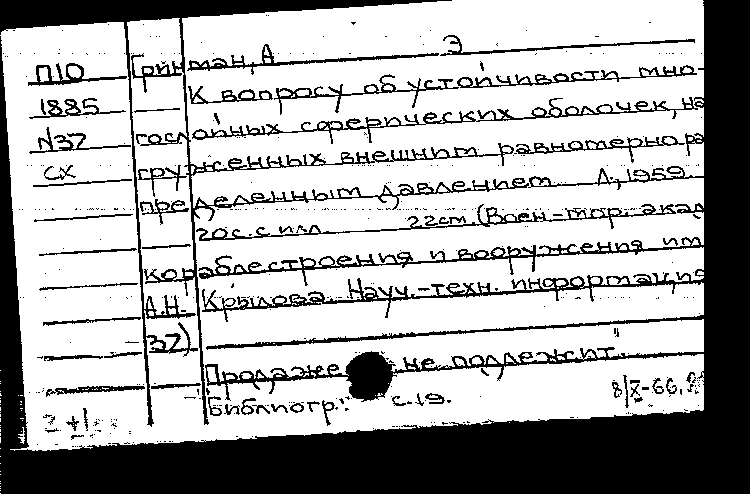 П10 Гринман, А Э
1885 К вопросу об устойчивости мно-
N37 гослойных сферических оболочек, на
сх груженных внешним равномерно ра
пределенным давлением Л., 1959.
20с. с илл. 22см. (Воен-мор. акад
кораблестроения и вооружения им
А.Н. Крылова. Науч.-техн. информация
37)
"Продаже не подлежит."
"Библиогр.": с.19.
8/X-66.